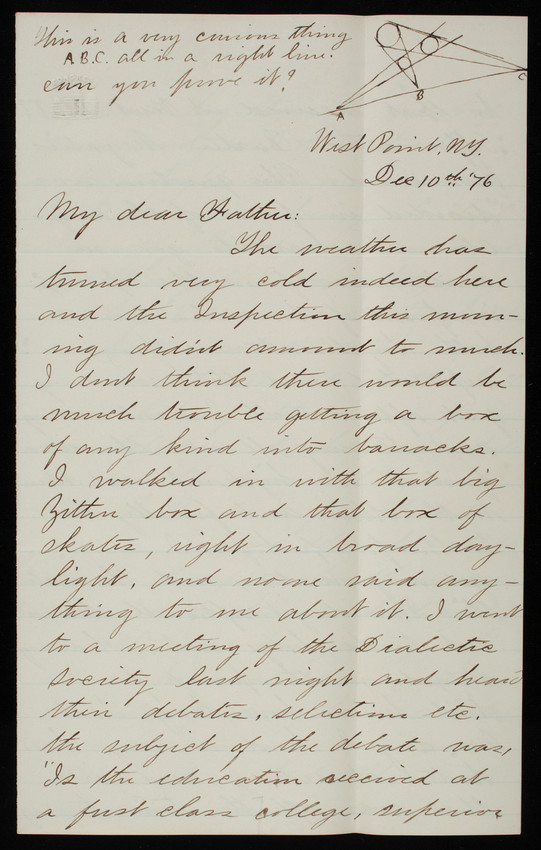 This is a very curious thing
A.B.C. all in a right line.
can you prove it?
A
B
C
West Point, N.Y.
Dec 10th "76
My dear Father:
The weather has
turned very cold indeed here
and the Inspection this morn-
ing did'nt amount to much.
I dont think there would be
much trouble getting a box
of any kind into barracks.
I walked in with that big
Zither box and that box of
skates, right in broad day-
light, and no one said any-
thing to me about it. I went
to a meeting of the Dialectic
Society last night and heard
their debates, selections etc.
the subject of the debate was,
"Is the education received at
a first class college, superior